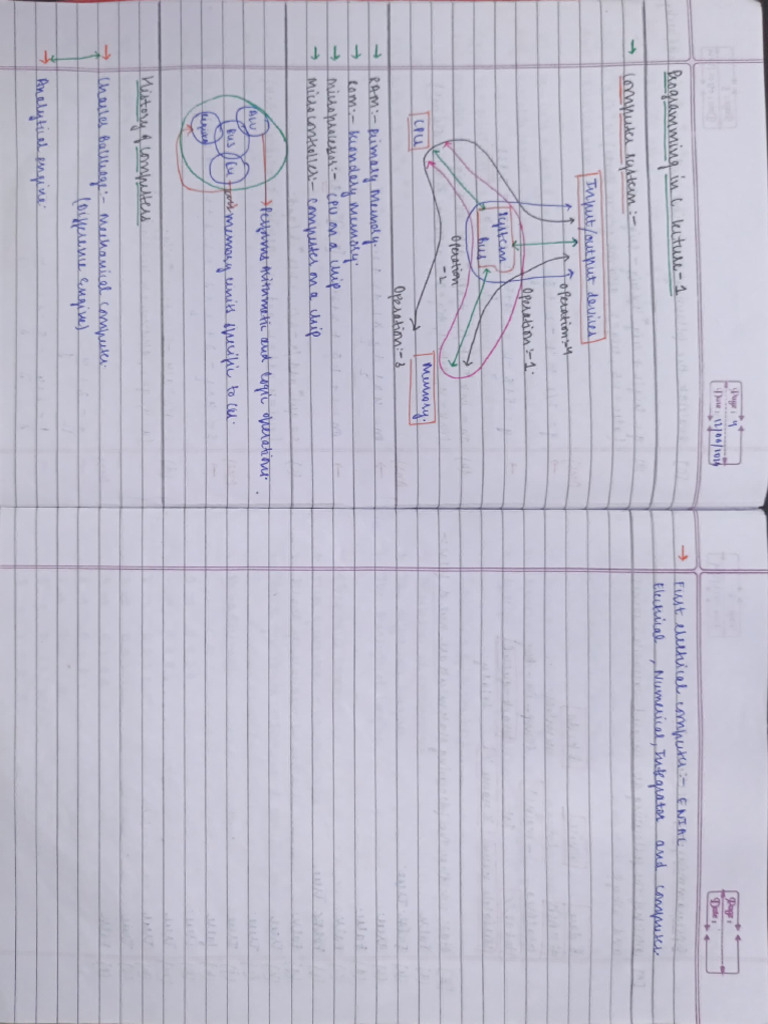 Page: 4
Programming in C lecture-1
Computer system:-
Input/output devices
Operation:-4
Operation:-1.
System
Bus
Operation
-2
CPU
Memory.
→ RAM:- Primary Memory.
→ ROM:- Secondary Memory.
→ Microprocessor:- CPU on a chip
→ Microcontroller:- Computer on a chip
ALU
→ Performs Arithmetic and Logic operations.
Bus
CU
→ memory units specific to CU.
History of computers
→ Charles Babbage:- Mechanical computer.
(Difference Engine)
→ Analytical engine.
Page:
Date:
→ First electrical computer:- ENIAC
Electrical, Numerical, Integrator and computer